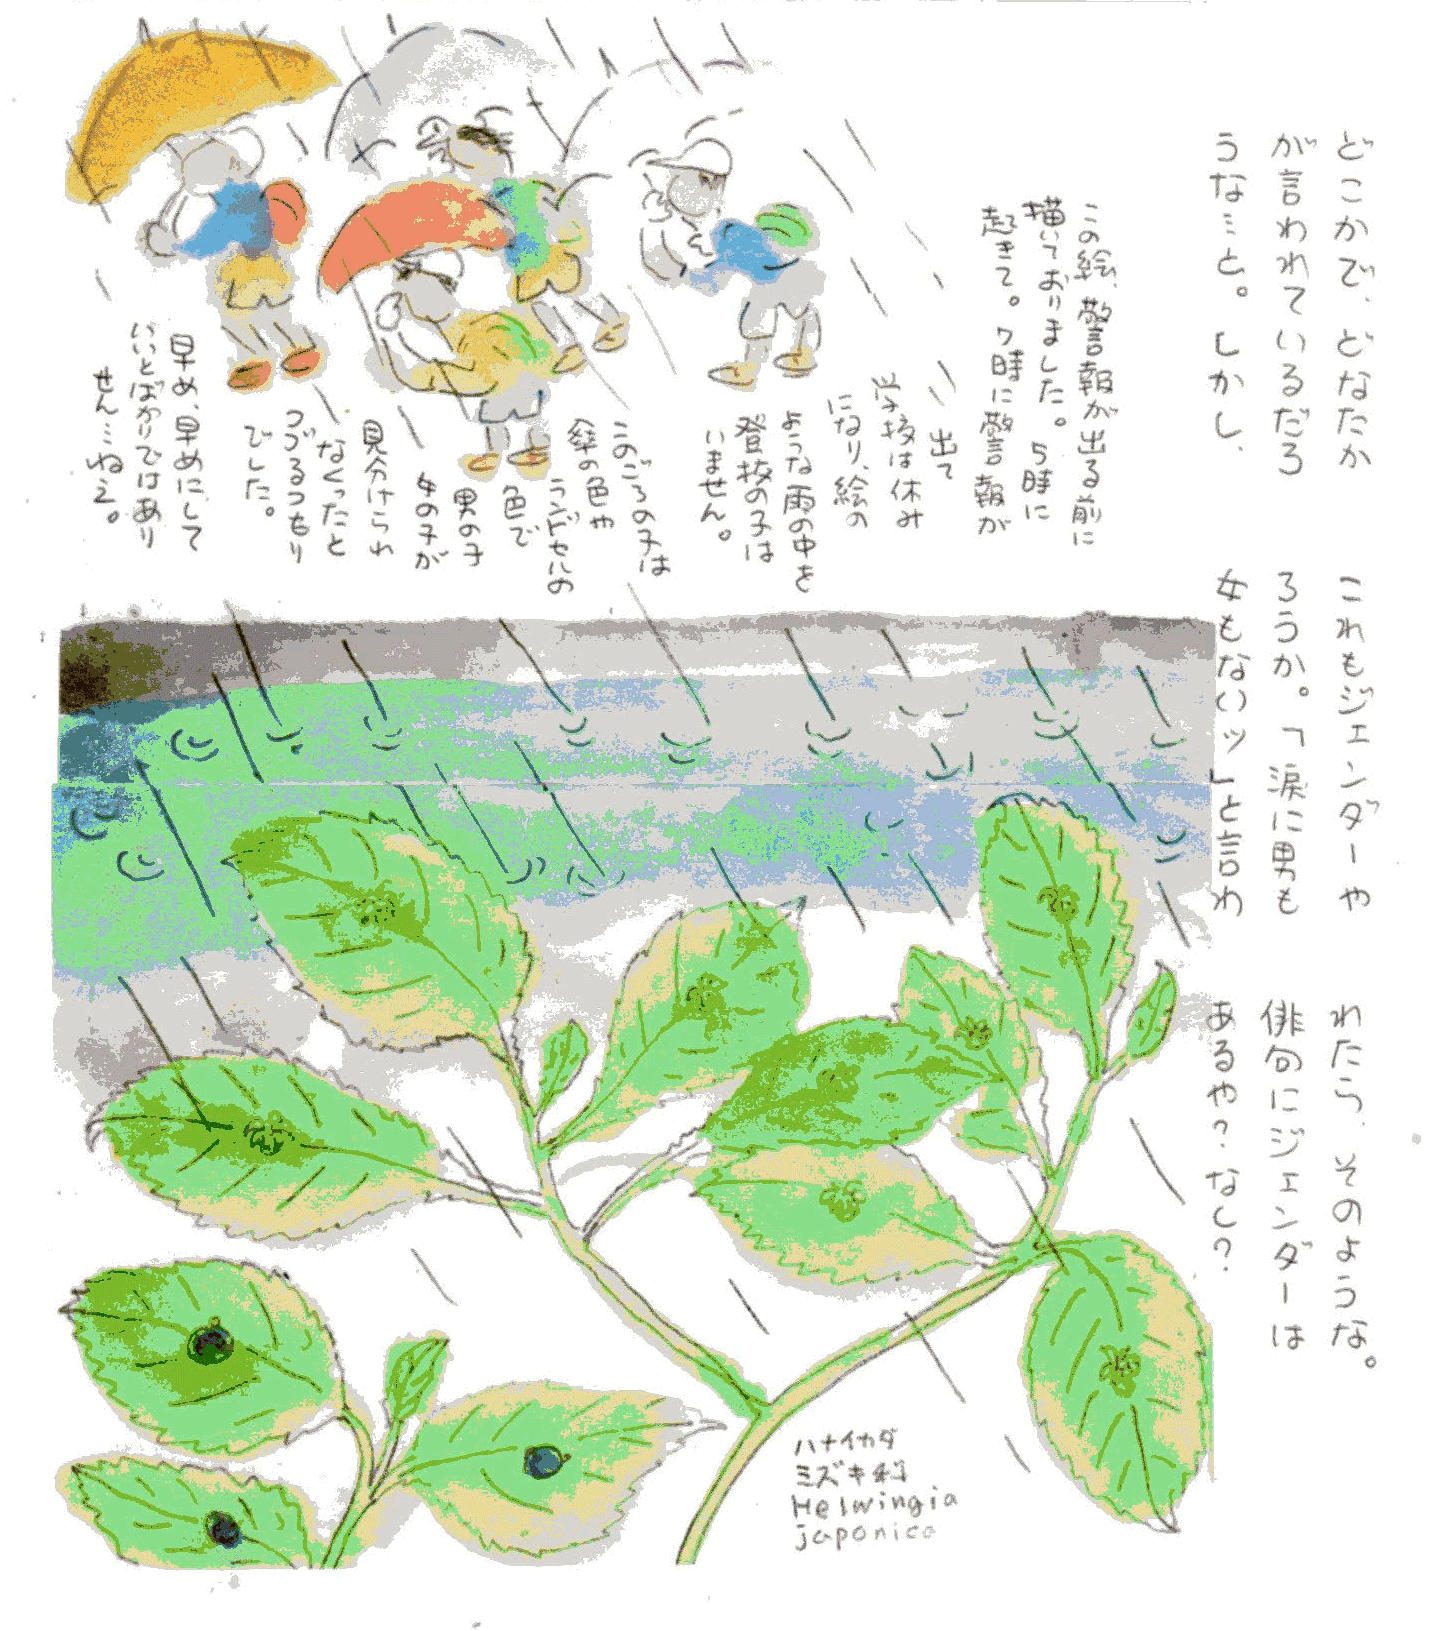 どこかで、どなたか
が言われているだろ
うな…と。しかし、
これもジェンダーや
ろうか。「涙に男も
女もないッ」と言わ
れたら、そのような。
俳句にジェンダーは
あるや?なし?
この絵、警報が出る前に
描いておりました。5時に
起きて。7時に警報が
出て
学校は休み
になり、絵の
ような雨の中を
登校の子は
いません。
このごろの子は
傘の色や
ランドセルの
色で
男の子
女の子が
見分けられ
なくったと
つづるつもり
でした。
早め、早めにして
いいとばかりではあり
せん…ねえ。
ハナイカダ
ミズキ科
Helwingia
japonica